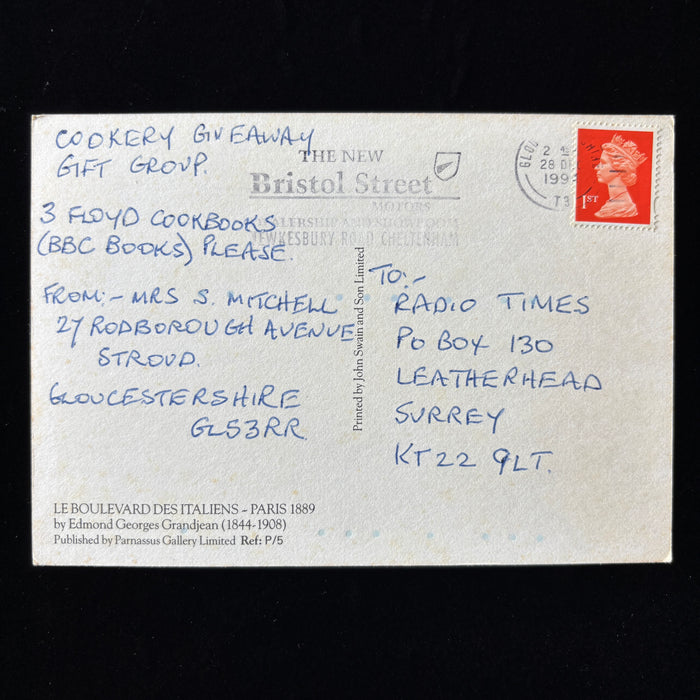 COOKERY GIVEAWAY
GIFT GROUP.
3 FLOYD COOKBOOKS
(BBC BOOKS) PLEASE.
FROM:- MRS S. MITCHELL
27 RODBOROUGH AVENUE
STROUD.
GLOUCESTERSHIRE
GL53RR
THE NEW
Bristol Street
MOTORS
DEALERSHIP AND SHOWROOM
TEWKESBURY ROAD CHELTENHAM
28 DE
199
T3
1ST
Printed by John Swain and Son Limited
TO:-
RADIO TIMES
PO BOX 130
LEATHERHEAD
SURREY
KT22 9LT.
LE BOULEVARD DES ITALIENS – PARIS 1889
by Edmond Georges Grandjean (1844-1908)
Published by Parnassus Gallery Limited Ref: P/5